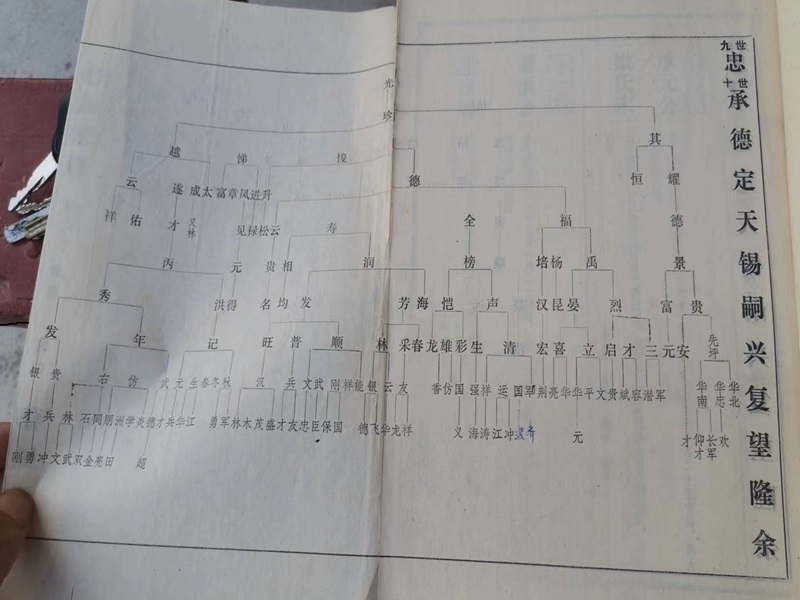 九世
忠
十世
承德定天锡嗣兴复望隆余
光
珍
越 悌 其
云 遂 成 太 富 章 凤 进 升 德 恒 耀
祥 佑 才 又林 见 禄 松 云 寿 全 福 德
丙 元 贵 相 润 榜 培 杨 禹 景
秀 洪 得 名 均 发 芳 海 恺 声 汉 昆 晏 烈 富 贵
发 年 记 旺 普 顺 林 采 春 龙 雄 彩 生 清 宏 喜 立 启 才 三 元 安 先坪
银 贵 右 仿 武 元 生 春 冬 秋 汉 兵 文 武 刚 祥 能 银 云 友 香 仿 国 强 祥 运 国 军 荆 亮 华 华 平 文 贵 斌 容 潜 军 华南 华忠 华北
才 兵 林 石 同 朋 洲 学 炎 德 才 兵 华 江 勇 军 林 木 茂 盛 才 友 忠 臣 保 国 德 飞 华 龙 祥 义 海 涛 江 冲 波 元 才 仰才 长军 欢
刚 勇 冲 文 武 双 金 亮 田 超